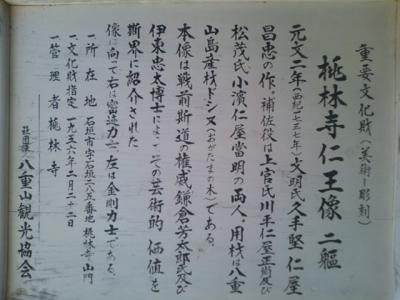 重要文化財(美術―彫刻)
桃林寺仁王像 二軀
元文二年(西紀一七三七年)文明氏久手堅仁屋
昌忠の作。補佐役は上官氏川平仁屋正周及び
松茂氏小濱仁屋當明の両人。用材は八重
山島産材ドシヌ(おがたまの木)である。
本像は戦前斯道の権威鎌倉芳太郎氏及び
伊東忠太博士によってその芸術的価値を
斯界に紹介された
像に向って右は密迹力士、左は金剛力士である。
一、所在地 石垣市字石垣二八五番地 桃林寺山門
一、文化財指定 一九五六年二月二十二日
一、管理者 桃林寺
社団法人 八重山観光協会